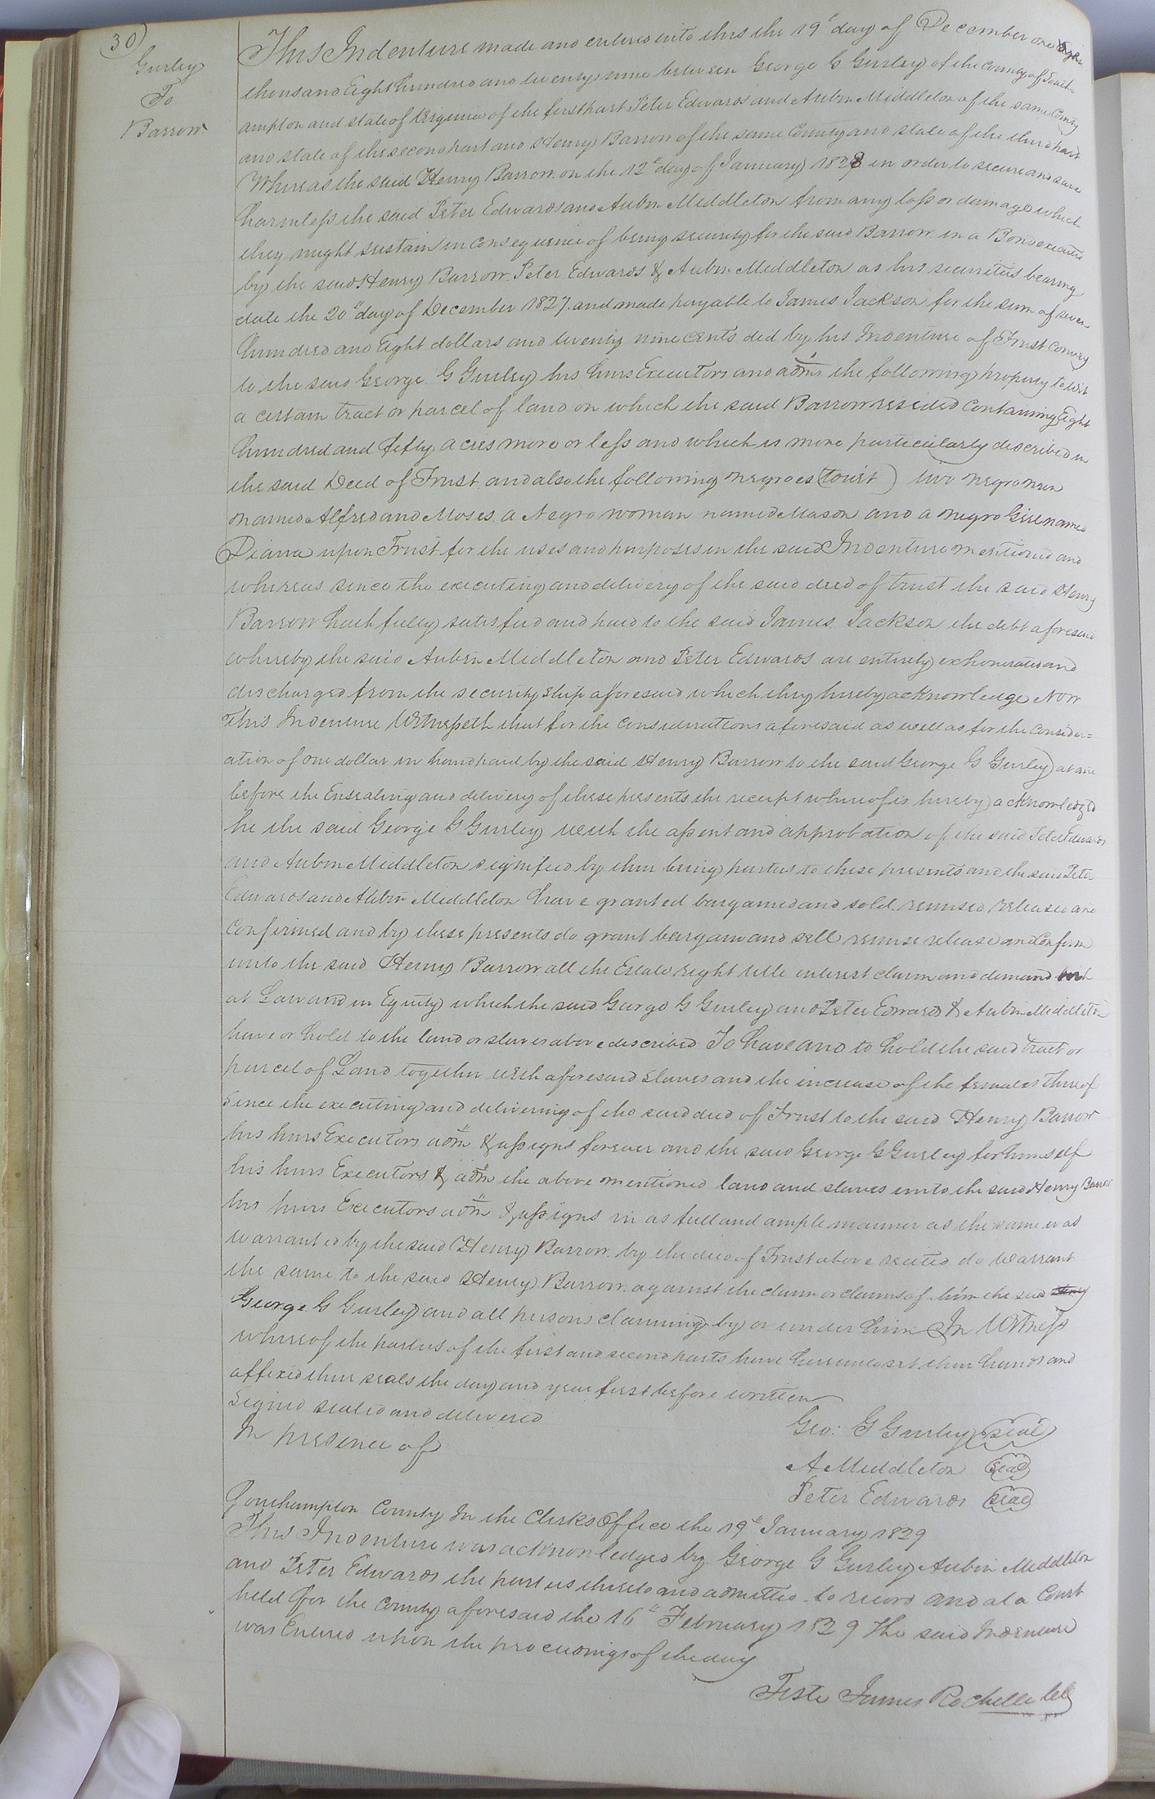 30
Gurley
To
Barrow
This Indenture made and entered into this the 19th day of December one
thousand Eight hundred and twenty nine between George G Gurley of the County of South-
ampton and state of Virginia of the first part Peter Edwards and Aubin Middleton of the same County
and state of the second part and Henry Barrow of the same County and state of the third part
Whereas the said Henry Barrow on the 12th day of January 1828 in order to secure and save
harmless the said Peter Edwards and Aubin Middleton from any loss or damage which
they might sustain in consequence of being security for the said Barrow in a Bond executed
by the said Henry Barrow Peter Edwards & Aubin Middleton as his securities bearing
date the 20th day of December 1827 and made payable to James Jackson for the sum of seven
hundred and Eight dollars and twenty nine cents did by his Indenture of Trust convey
to the said George G Gurley his heirs Executors and adm.rs the following property to wit
a certain tract or parcel of land on which the said Barrow resided Containing Eight
hundred and fifty acres more or less and which is more particularly described in
the said Deed of Trust and also the following negroes (towit) two negro men
named Alfred and Moses a Negro woman named Mason and a negro Girl named
Diana upon Trust for the uses and purposes in the said Indenture mentioned and
whereas since the executing and delivery of the said deed of trust the said Henry
Barrow hath fully satisfied and paid to the said James Jackson the debt aforesaid
whereby the said Aubin Middleton and Peter Edwards are entirely exhonerated and
discharged from the security ship aforesaid which they hereby acknowledge Now
This Indenture Witnesseth that for the considerations aforesaid as well as for the consider=
ation of one dollar in hand paid by the said Henry Barrow to the said George G Gurley at and
before the Ensealing and delivery of these presents the receipt whereof is hereby acknowledged
he the said George G Gurley with the assent and approbation of the said Peter Edwards
and Aubin Middleton signified by their being parties to these presents and the said Peter
Edwards and Aubin Middleton have granted bargained and sold remised released and
Confirmed and by these presents do grant bargain and sell remise release and Confirm
unto the said Henry Barrow all the Estate right title interest claim and demand
at Law and in Equity which the said George G Gurley and Peter Edwards & Aubin Middleton
have or hold to the land or slaves above described To have and to hold the said tract or
parcel of Land together with aforesaid slaves and the increase of the females thereof
since the executing and delivering of the said deed of Trust to the said Henry Barrow
his heirs Executors adm.rs & assigns forever and the said George G Gurley for himself
his heirs Executors & adm.rs the above mentioned land and slaves unto the said Henry Barrow
his heirs Executors adm.rs & assigns in as full and ample manner as the same was
warranted by the said Henry Barrow by the deed of Trust above recited do warrant
the same to the said Henry Barrow against the claim or claims of him the said
George G Gurley and all persons claiming by or under him In Witness
whereof the parties of the first and second parts have hereunto set their hands and
affixed their seals the day and year first before written
Signed sealed and delivered
In presence of
Geo: G Gurley seal
A Middleton seal
Peter Edwards seal
Southampton County In the Clerks Office the 19th January 1829
This Indenture was acknowledged by George G Gurley Aubin Middleton
and Peter Edwards the parties thereto and admitted to record and at a Court
held for the County aforesaid the 16th February 1829 The said Indenture
was Entered upon the proceedings of the day
Teste James Rochelle